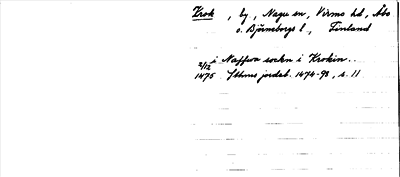 Krok, by, Nagu sn, Virmo hd, Åbo
o. Björneborgs l., Finland
i Naffwa sockn i Krokin..
2/12
1475 Sthms jordeb. 1474-98, s. 11